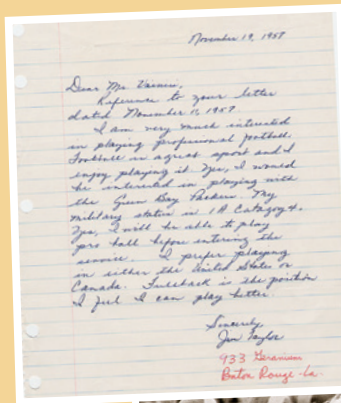 November 19, 1957
Dear Mr. Vainisi,
Reference to your letter
dated November 15, 1957.
I am very much interested
in playing professional football.
Football is a great sport and I
enjoy playing it. Yes, I would
be interested in playing with
the Green Bay Packers. My
military status is 1A Category 4.
Yes, I will be able to play
pro ball before entering the
service. I prefer playing
in either the United States or
Canada. Fullback is the position
I feel I can play better.
Sincerely,
Jim Taylor
933 Geranium
Baton Rouge - La.